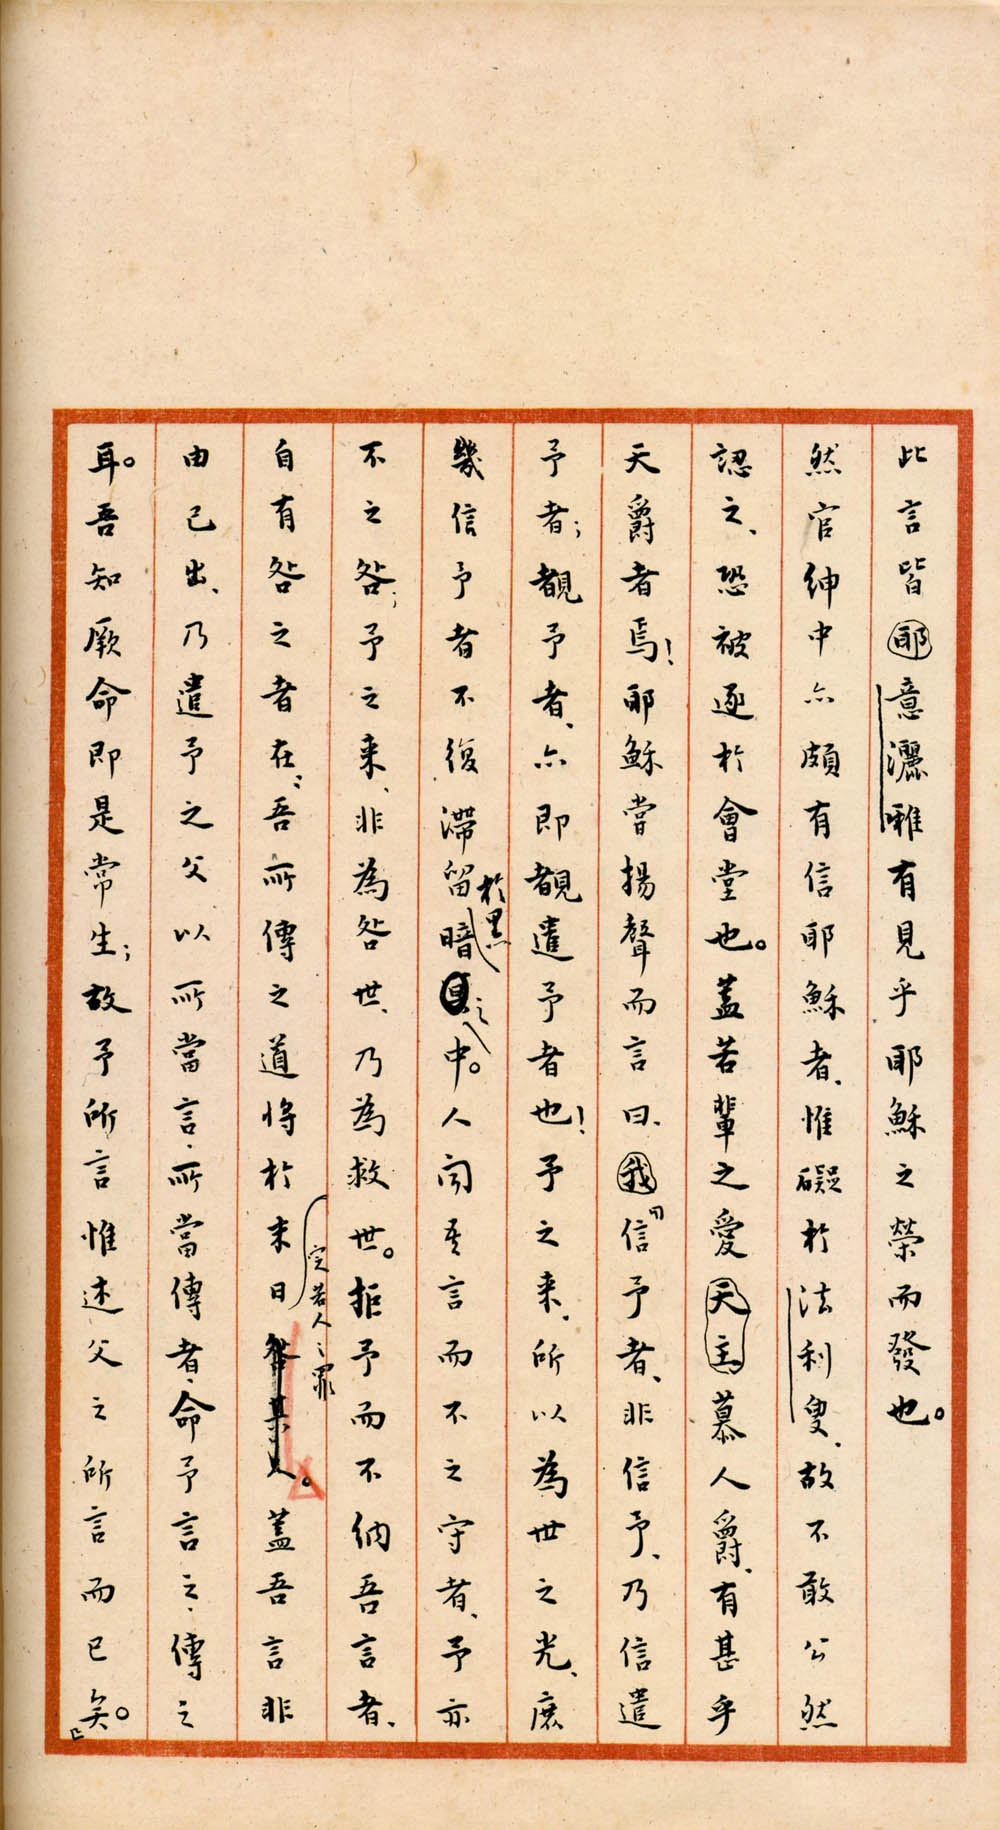 此言皆耶意灑雅有見乎耶穌之榮而發也。
然官紳中亦頗有信耶穌者、惟礙於法利叟、故不敢公然
認之、恐被逐於會堂也。蓋若輩之愛天主慕人爵、有甚乎
天爵者焉！耶穌嘗揚聲而言曰、我「信予者、非信予、乃信遣
予者；覩予者、亦即覩遣予者也！予之來、所以為世之光、庶
幾信予者不復滯留於黑暗之中。人聞吾言而不之守者、予亦
不之咎；予之來、非為咎世、乃為救世。拒予而不納吾言者、
自有咎之者在；吾所傳之道將於末日咎其人。蓋吾言非
定若人之罪
由己出、乃遣予之父以所當言、所當傳者、命予言之、傳之
耳。吾知厥命即是常生；故予所言惟述父之所言而已矣。」